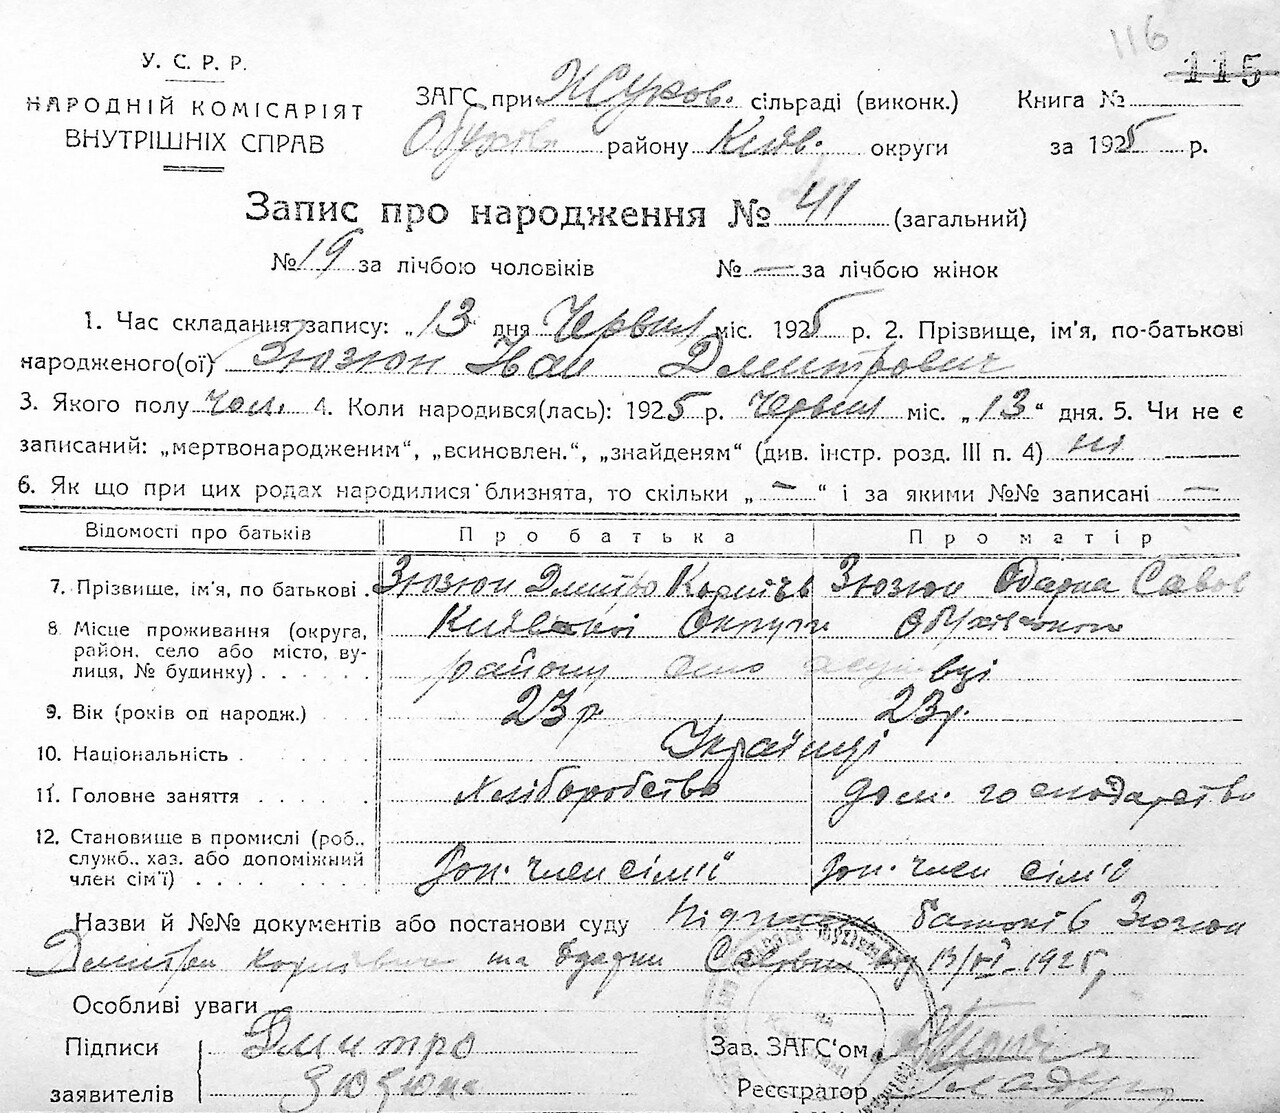 116
115
У. С. Р. Р.
НАРОДНІЙ КОМІСАРІЯТ
ВНУТРІШНІХ СПРАВ
ЗАГС при Жуков. сільраді (виконк.) Книга №
Обухів району Київ. округи за 1925 р.
Запис про народження № 41 (загальний)
№ 19 за лічбою чоловіків № — за лічбою жінок
1. Час складання запису: „13 дня Червня міс. 1925 р. 2. Прізвище, ім'я, по-батькові
народженого(ої) Зюзюн Іван Дмитрович
3. Якого полу чол. 4. Коли народився(лась): 1925 р. Червня міс. „13“ дня. 5. Чи не є
записаний: „мертвонародженим“, „всиновлен.“, „знайденям“ (див. інстр. розд. III п. 4) ні
6. Як що при цих родах народилися близнята, то скільки „—“ і за якими №№ записані —
Відомості про батьків Про батька Про матір
7. Прізвище, ім'я, по батькові Зюзюн Дмитро Зюзюн Одарка Савов
8 Місце проживання (округа, район, село або місто, вулиця, № будинку) Київської Округи Обухівського
району
9. Вік (років од народж.) 23 р. 23 р.
10. Національність Українці
11. Головне заняття Хліборобство дом. господарство
12. Становище в промислі (роб., служб., хаз. або допоміжний член сім'ї) Доп. член сім'ї Доп. член сім'ї
Назви й №№ документів або постанови суду батьків Зюзюн
Дмитра та Одарки 13/VI 1925
Особливі уваги
Підписи заявителів Дмитро
Зюзюн
Зав. ЗАГС'ом
Реєстратор